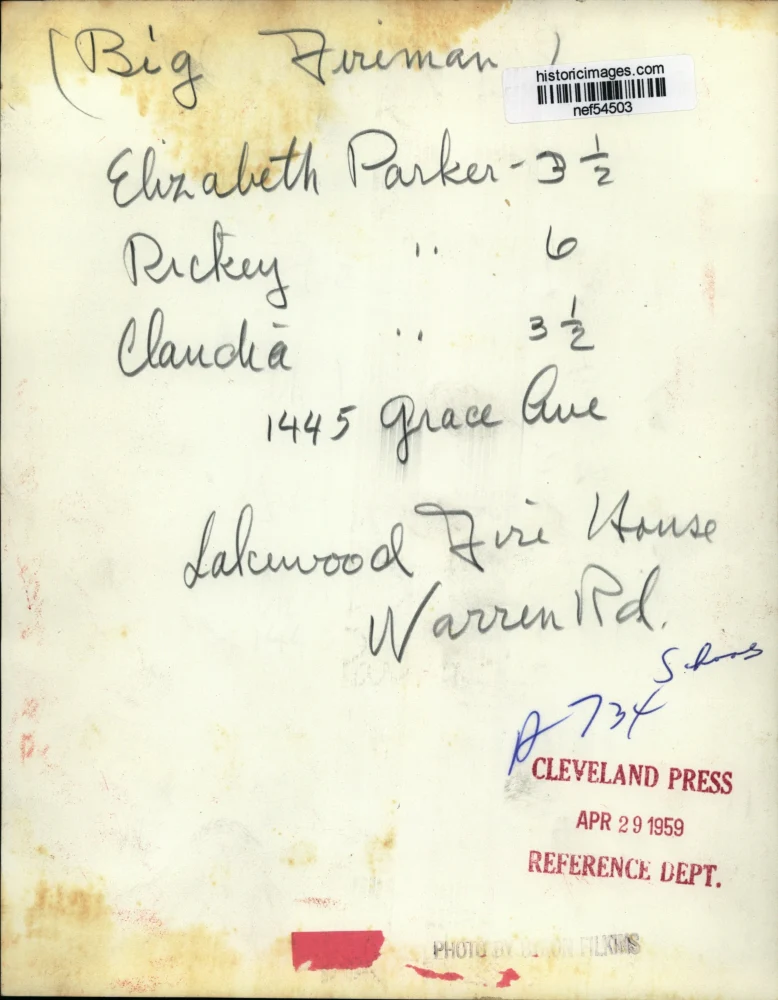 (Big Fireman)
historicimages.com
nef54503
Elizabeth Parker - 3 1/2
Rickey " 6
Claudia " 3 1/2
1445 Grace Ave
Lakewood Fire House
Warren Rd.
A 734
CLEVELAND PRESS
APR 29 1959
REFERENCE DEPT.
PHOTO BY